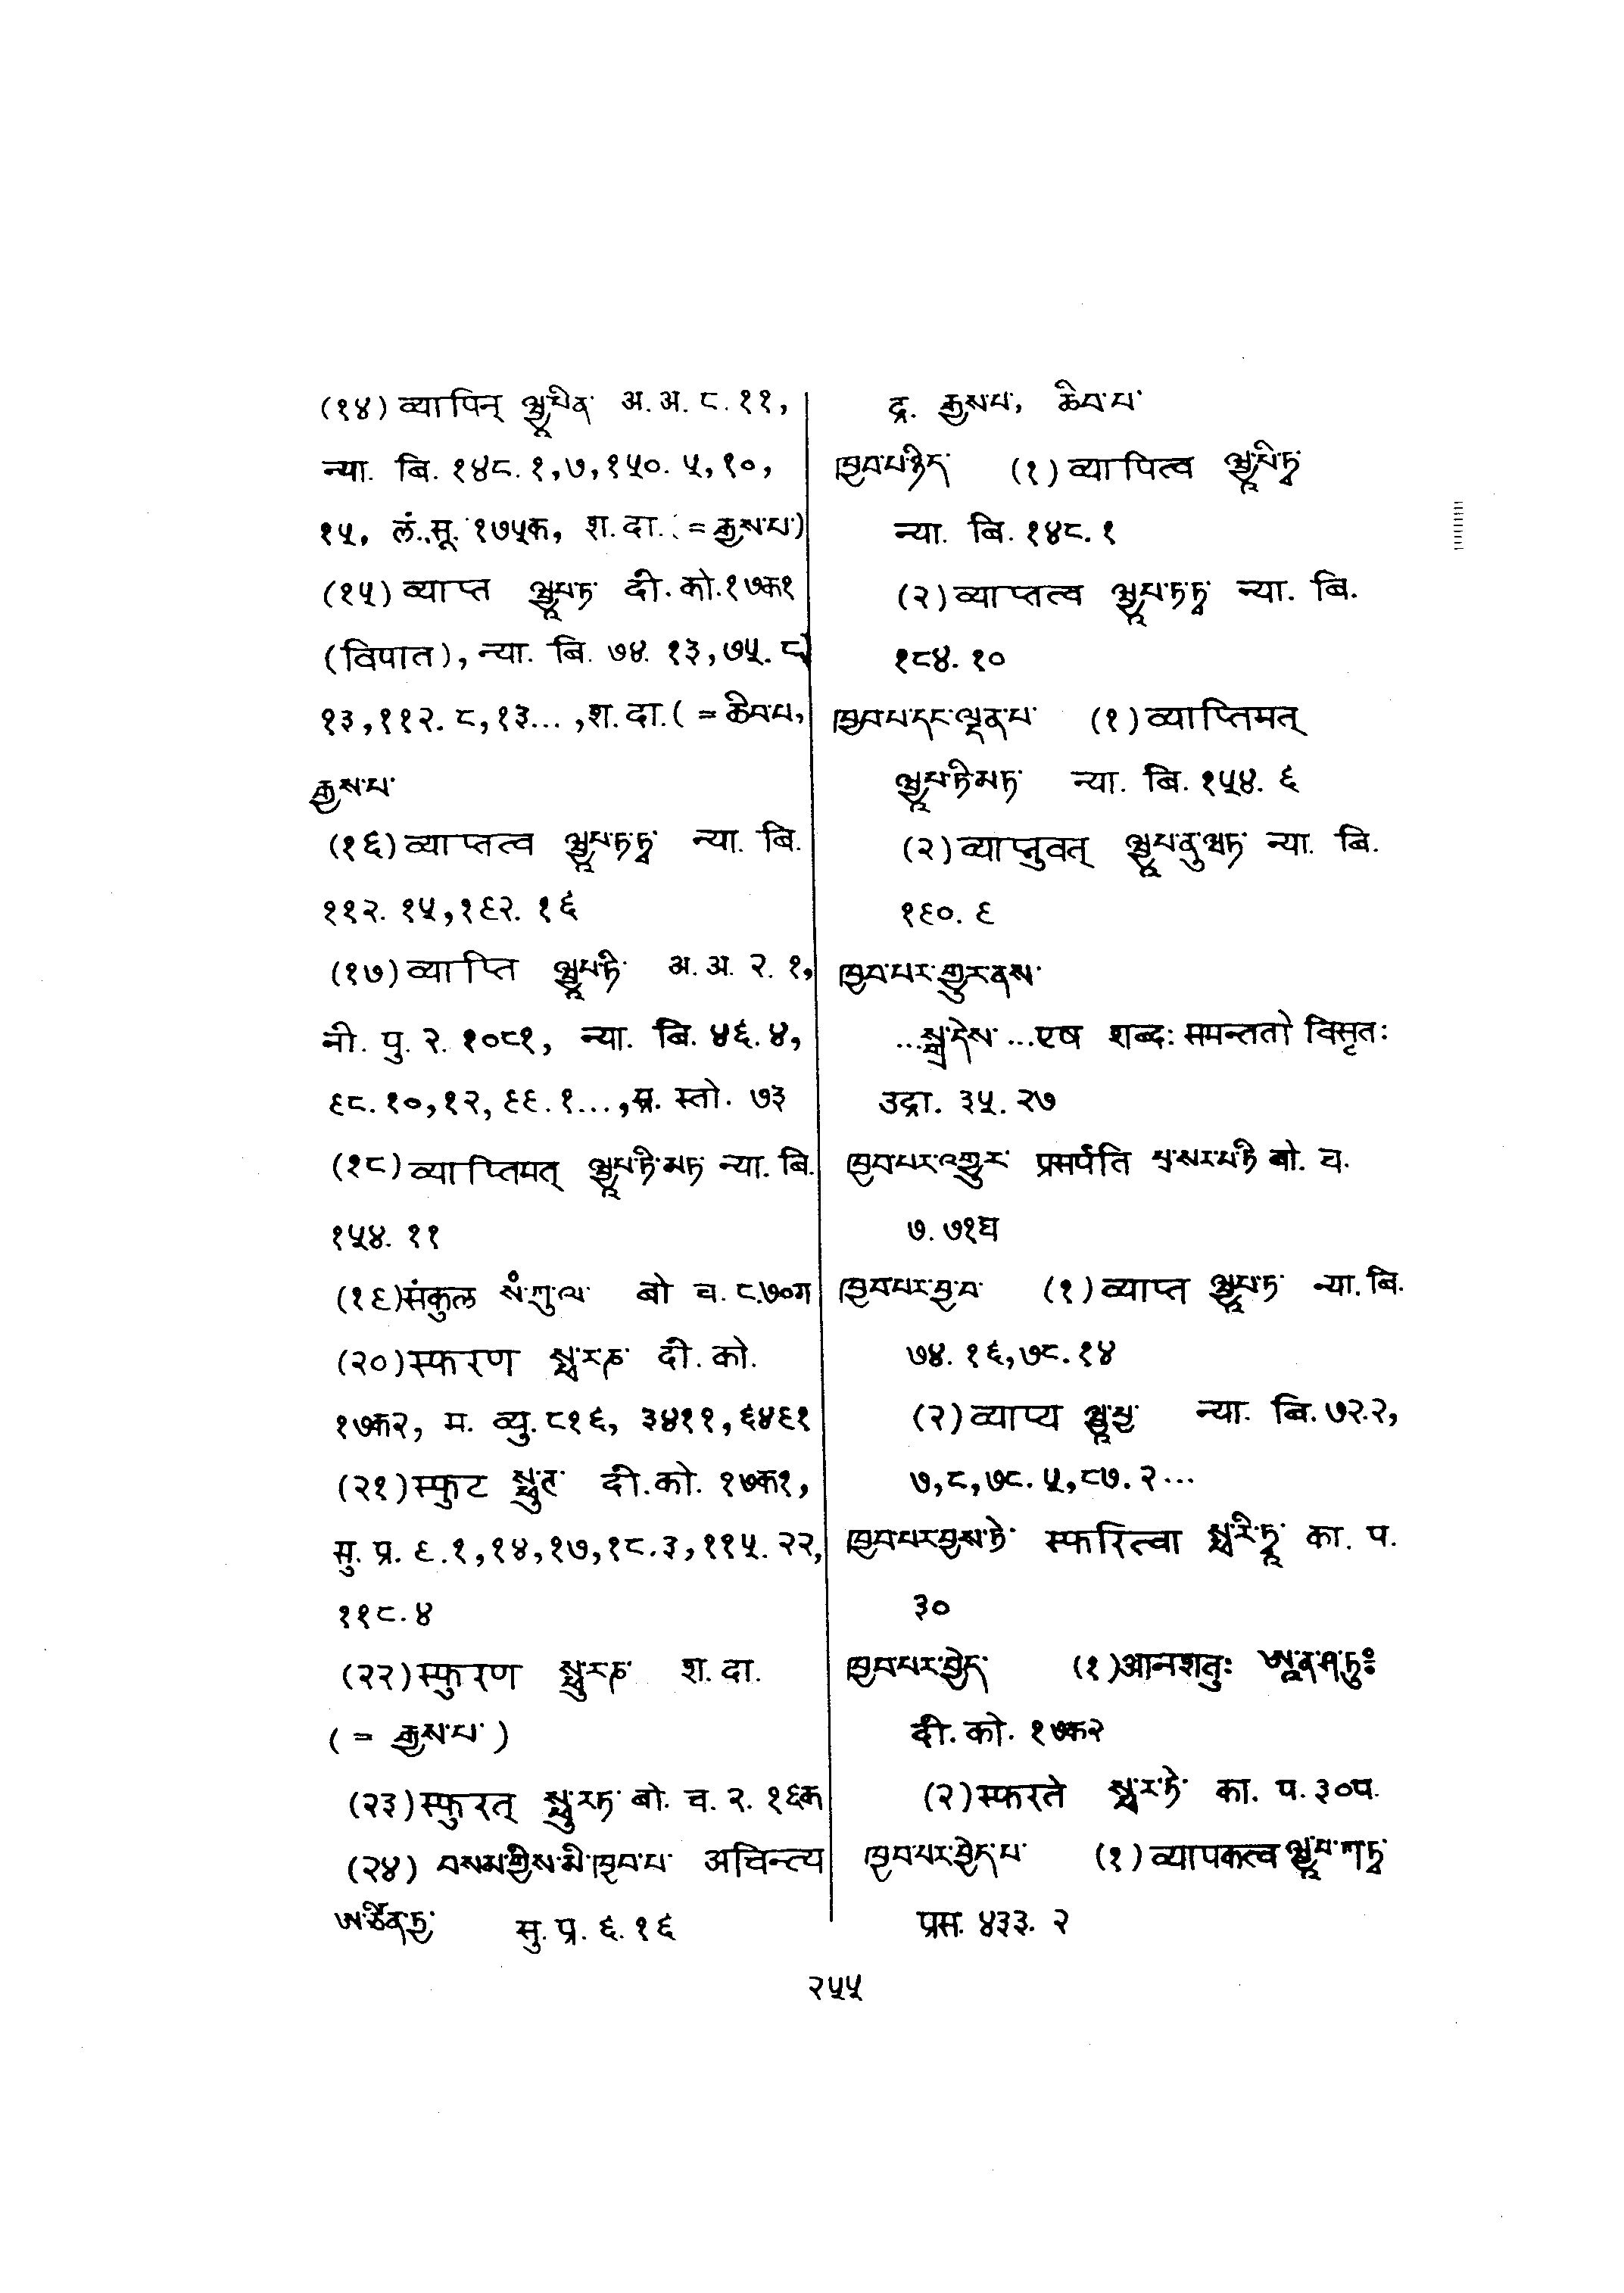 (१४) व्यापिन् ཝྱཱ་པིན་ अ. अ. ८. ११,
न्या. बि. १४८. १, ७, १५०. ५, १०,
१५, लं. सू. १७५क, श. दा. (= རྒྱས་པ་)
(१५) व्याप्त ཝྱཱཔྟ་ दी. को. १७क१
(विपात), न्या. बि. ७४. १३, ७५. ८,
१३, ११२. ८, १३..., श. दा. ( = ཆེབ་པ,
རྒྱས་པ་
(१६) व्याप्तत्व ཝྱཱཔ་ཏ་ཏྭ་ न्या. बि.
११२. १५, १९२. १६
(१७) व्याप्ति ཝྱཱཔ་ཏི་ अ. अ. २. १,
नी. पु. २. १०८१, न्या. बि. ४६. ४,
९८. १०, १२, ९९. १..., प्र. स्तो. ७३
(१८) व्याप्तिमत् ཝྱཱཔ་ཏི་མཏ་ न्या. बि.
१५४. ११
(१९) संकुल སཾ་ཀུ་ལ་ बो च. ८.७०ग
(२०) स्फरण སྥ་ར་ཎ་ दी. को.
१७क२, म. व्यु. ८१६, ३४११, ६४९१
(२१) स्फुट སྥུ་ཊ་ दी. को. १७क१,
सु. प्र. ९. १, १४, १७, १८. ३, ११५. २२,
११८. ४
(२२) स्फुरण སྥུ་ར་ཎ་ श. दा.
( = རྒྱས་པ་ )
(२३) स्फुरत् སྥུ་རཏ་ बो. च. २. १६क
(२४) བསམ་གྱིས་མི་ཁྱབ་པ་ अचिन्त्य
ཨ་ཙིནྟྱ་ सु. प्र. ६. १६
द्र. རྒྱས་པ, ཆེབ་པ་
ཁྱབ་པ་ཉིད་ (१) व्यापित्व ཝྱཱ་པི་ཏྭ་
न्या. बि. १४८. १
(२) व्याप्तत्व ཝྱཱཔ་ཏ་ཏྭ་ न्या. बि.
१८४. १०
ཁྱབ་པ་དང་ལྡན་པ་ (१) व्याप्तिमत्
ཝྱཱཔ་ཏི་མཏ་ न्या. बि. १५४. ६
(२) व्याप्नुवत् ཝྱཱཔ་ནུ་ཝཏ་ न्या. बि.
१९०. ९
ཁྱབ་པར་གྱུར་ནས་
...སྒྲ་དེས་ ...एष शब्दः समन्ततो विसृतः
उद्रा. ३५. २७
ཁྱབ་པར་འགྱུར་ प्रसर्पति པྲ་སར་པ་ཏི་ बो. च.
७. ७१घ
ཁྱབ་པར་བྱ་བ་ (१) व्याप्त ཝྱཱཔ་ཏ་ न्या. बि.
७४. १६, ७८. १४
(२) व्याप्य ཝྱཱ་པྱ་ न्या. बि. ७२.२,
७, ८, ७८. ५, ८७. २...
ཁྱབ་པར་བྱས་ཏེ་ स्फरित्वा སྥ་རི་ཏྭཱ་ का. प.
३०
ཁྱབ་པར་བྱེད་ (१) आनशतुः ཨཱ་ན་ཤ་ཏུཿ
दी. को. १७क२
(२) स्फरते སྥ་ར་ཏེ་ का. प. ३०प.
ཁྱབ་པར་བྱེད་པ་ (१) व्यापकत्व ཝྱཱ་པ་ཀ་ཏྭ་
प्रस. ४३३. २
२५५